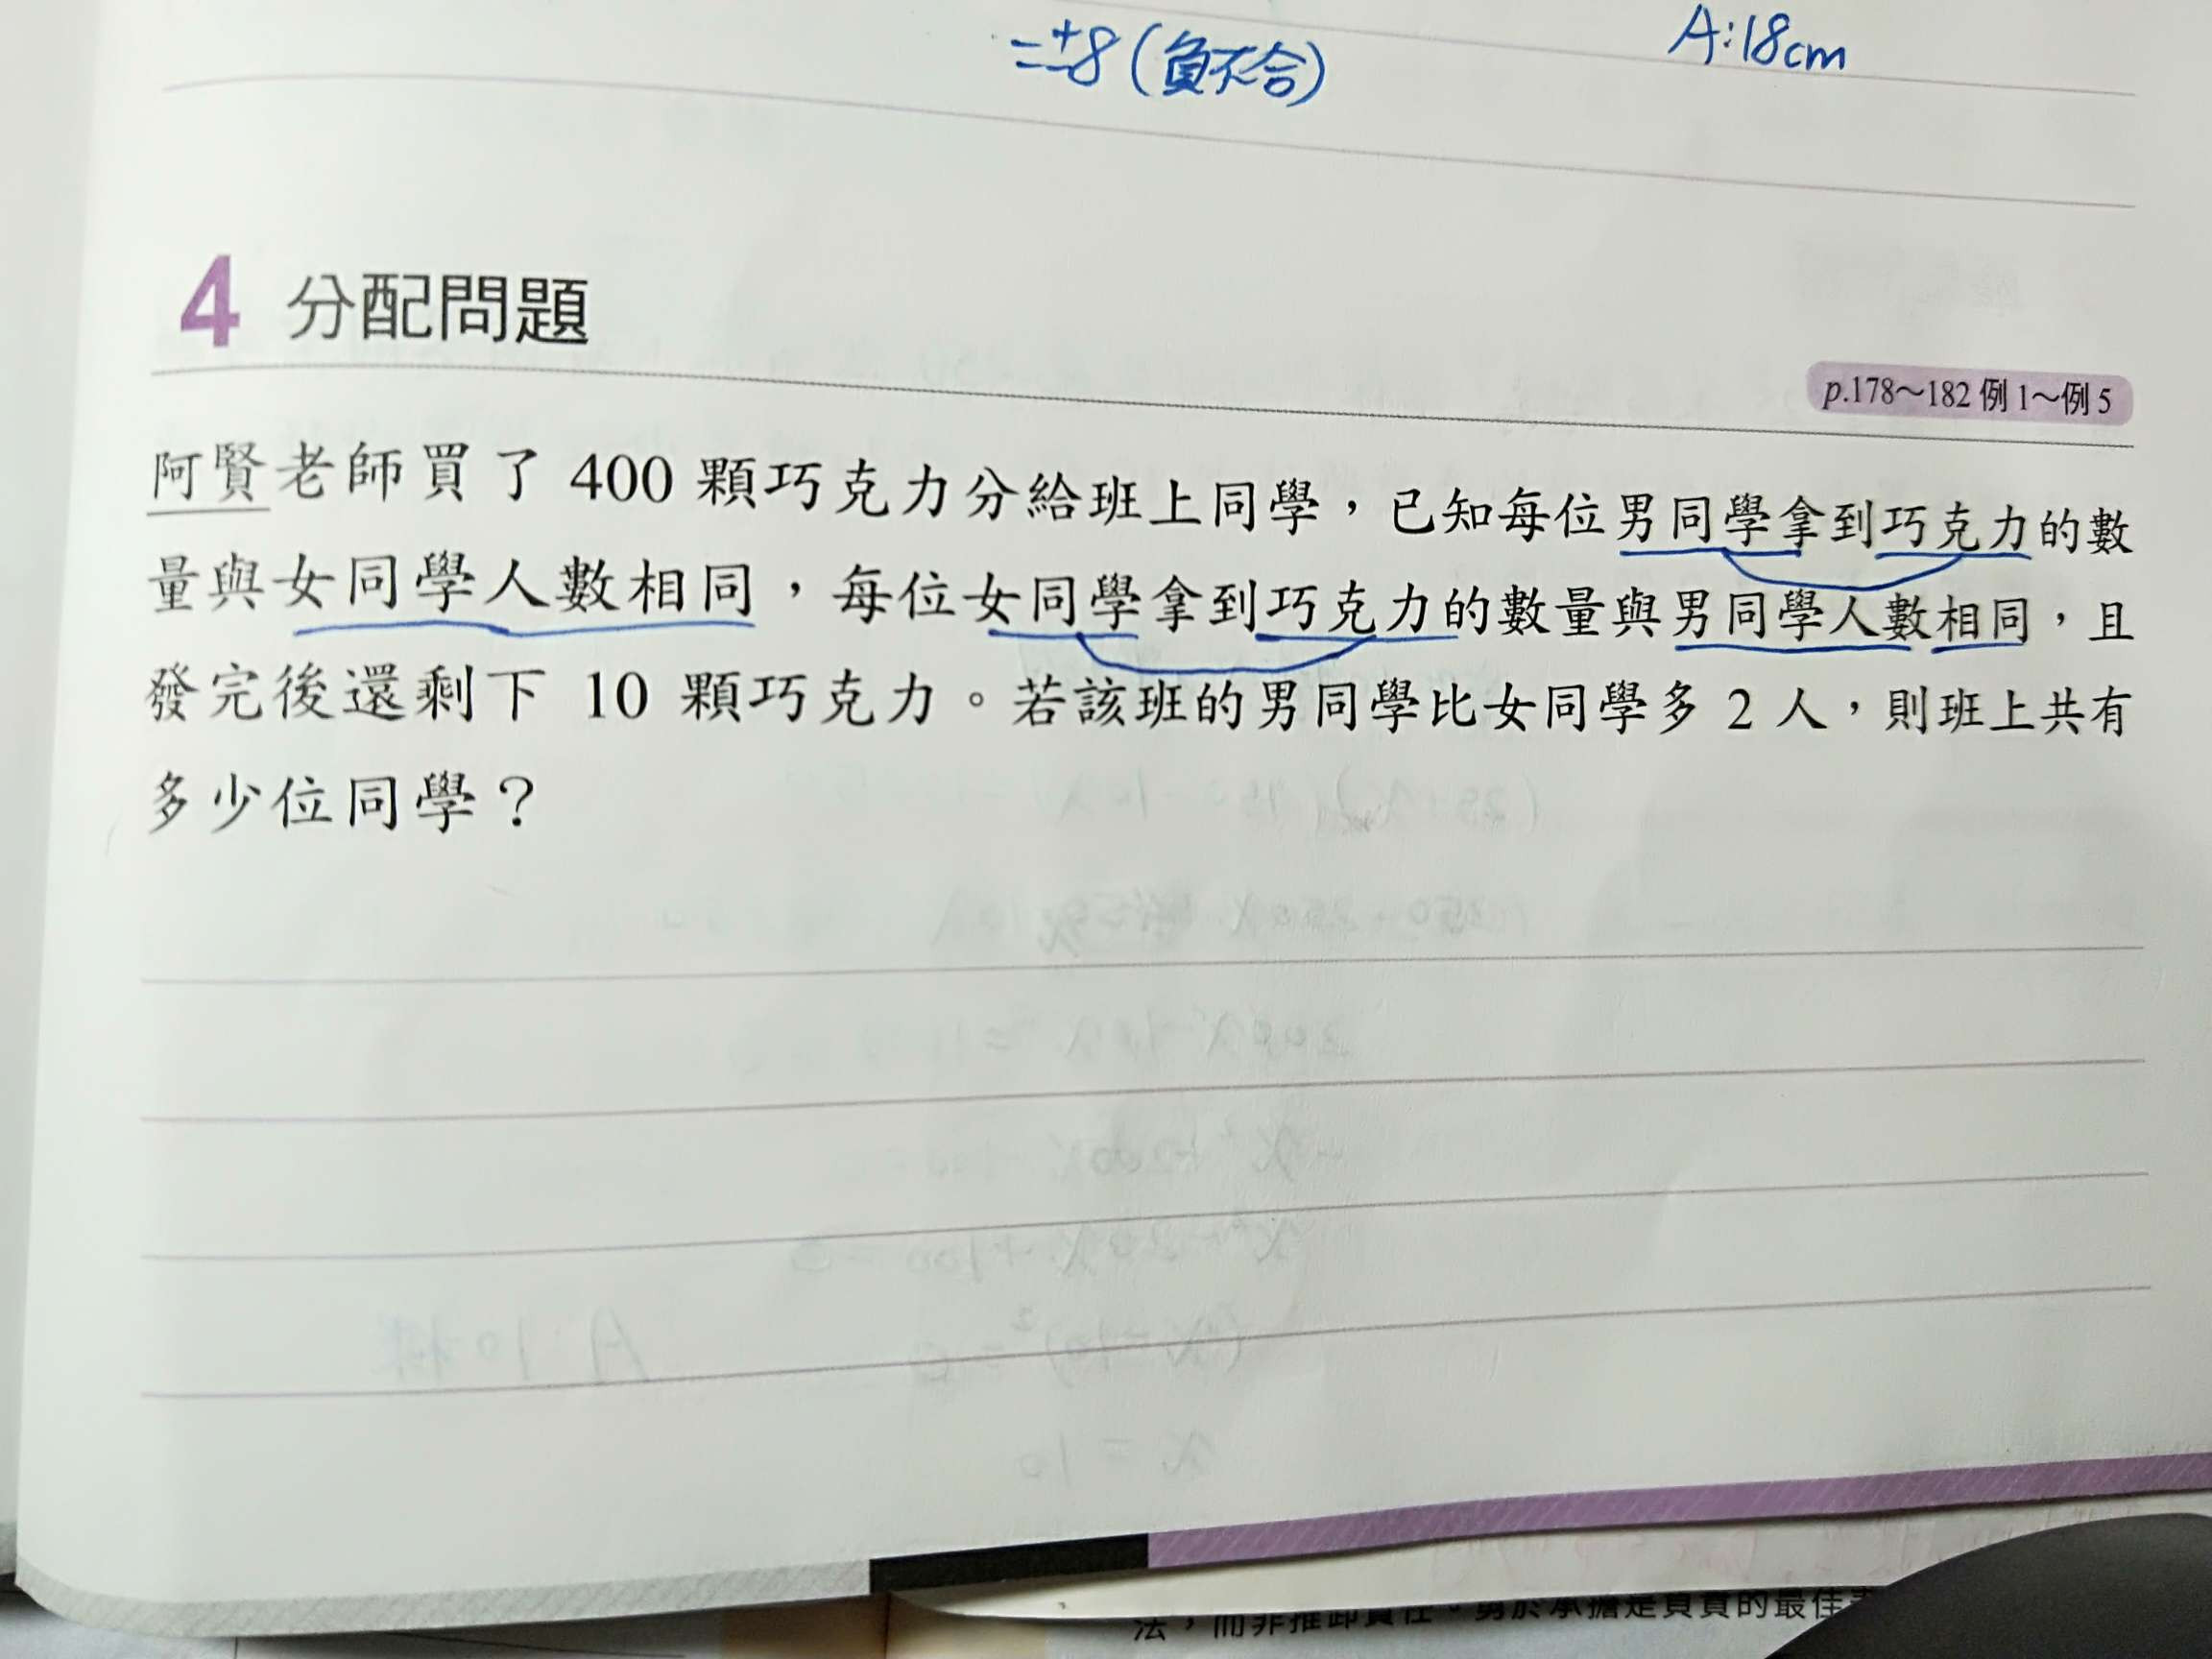 =±8(負不合)
A:18cm
4 分配問題
p.178～182 例1～例5
阿賢老師買了 400 顆巧克力分給班上同學，已知每位男同學拿到巧克力的數
量與女同學人數相同，每位女同學拿到巧克力的數量與男同學人數相同，且
發完後還剩下 10 顆巧克力。若該班的男同學比女同學多 2 人，則班上共有
多少位同學？
法，而非推卸責任。勇於承擔是負責的最佳